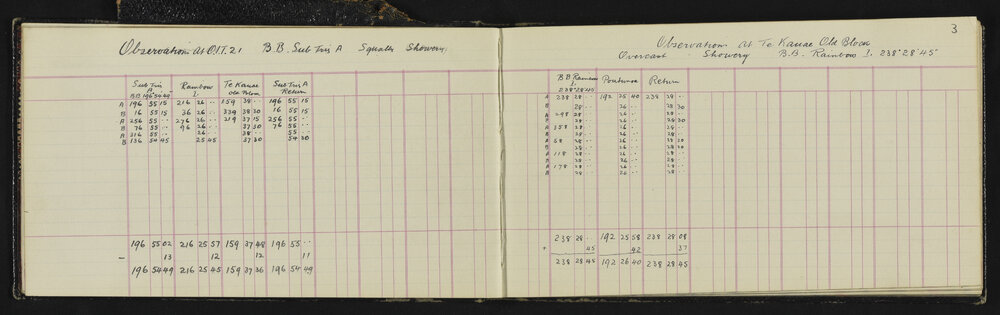 Observation at O.I.T. 21 B.B. Sub Tris A Squalls Showery.
Sub Tris A Rainbow 1. Te Kanae Old Block Sub Tris A Return
B.B. 196 54 49
A 196 55 15 216 26 ·· 159 38 ·· 196 55 15
B 16 55 15 36 26 ·· 339 38 30 16 55 15
A 256 55 ·· 276 26 ·· 219 37 15 256 55 ··
B 76 55 ·· 96 26 ·· 37 30 76 55 ··
A 316 55 ·· 26 ·· 38 ·· 55 ··
B 136 54 45 25 45 37 30 54 30
196 55 02 216 25 57 159 37 48 196 55 ··
– 13 12 12 11
196 54 49 216 25 45 159 37 36 196 54 49
3
Observations at Te Kanae Old Block
Overcast Showery B.B. Rainbow 1. 238° 28' 45"
B B Rainbow Return
238° 28' 45"
A 238 28 ·· 192 25 40 238 28 ··
B 28 ·· 26 ·· 28 30
A 298 28 ·· 26 ·· 28 ··
B 28 ·· 26 ·· 28 30
A 358 28 ·· 26 ·· 28 ··
B 28 ·· 26 ·· 28 ··
A 58 28 ·· 26 ·· 28 30
B 28 ·· 26 ·· 28 30
A 118 28 ·· 26 ·· 28 ··
B 28 ·· 26 ·· 28 ··
A 178 28 ·· 26 ·· 28 ··
B 28 ·· 26 ·· 28 ··
238 28 ·· 192 25 58 238 28 08
+ 45 42 37
238 28 45 192 26 40 238 28 45